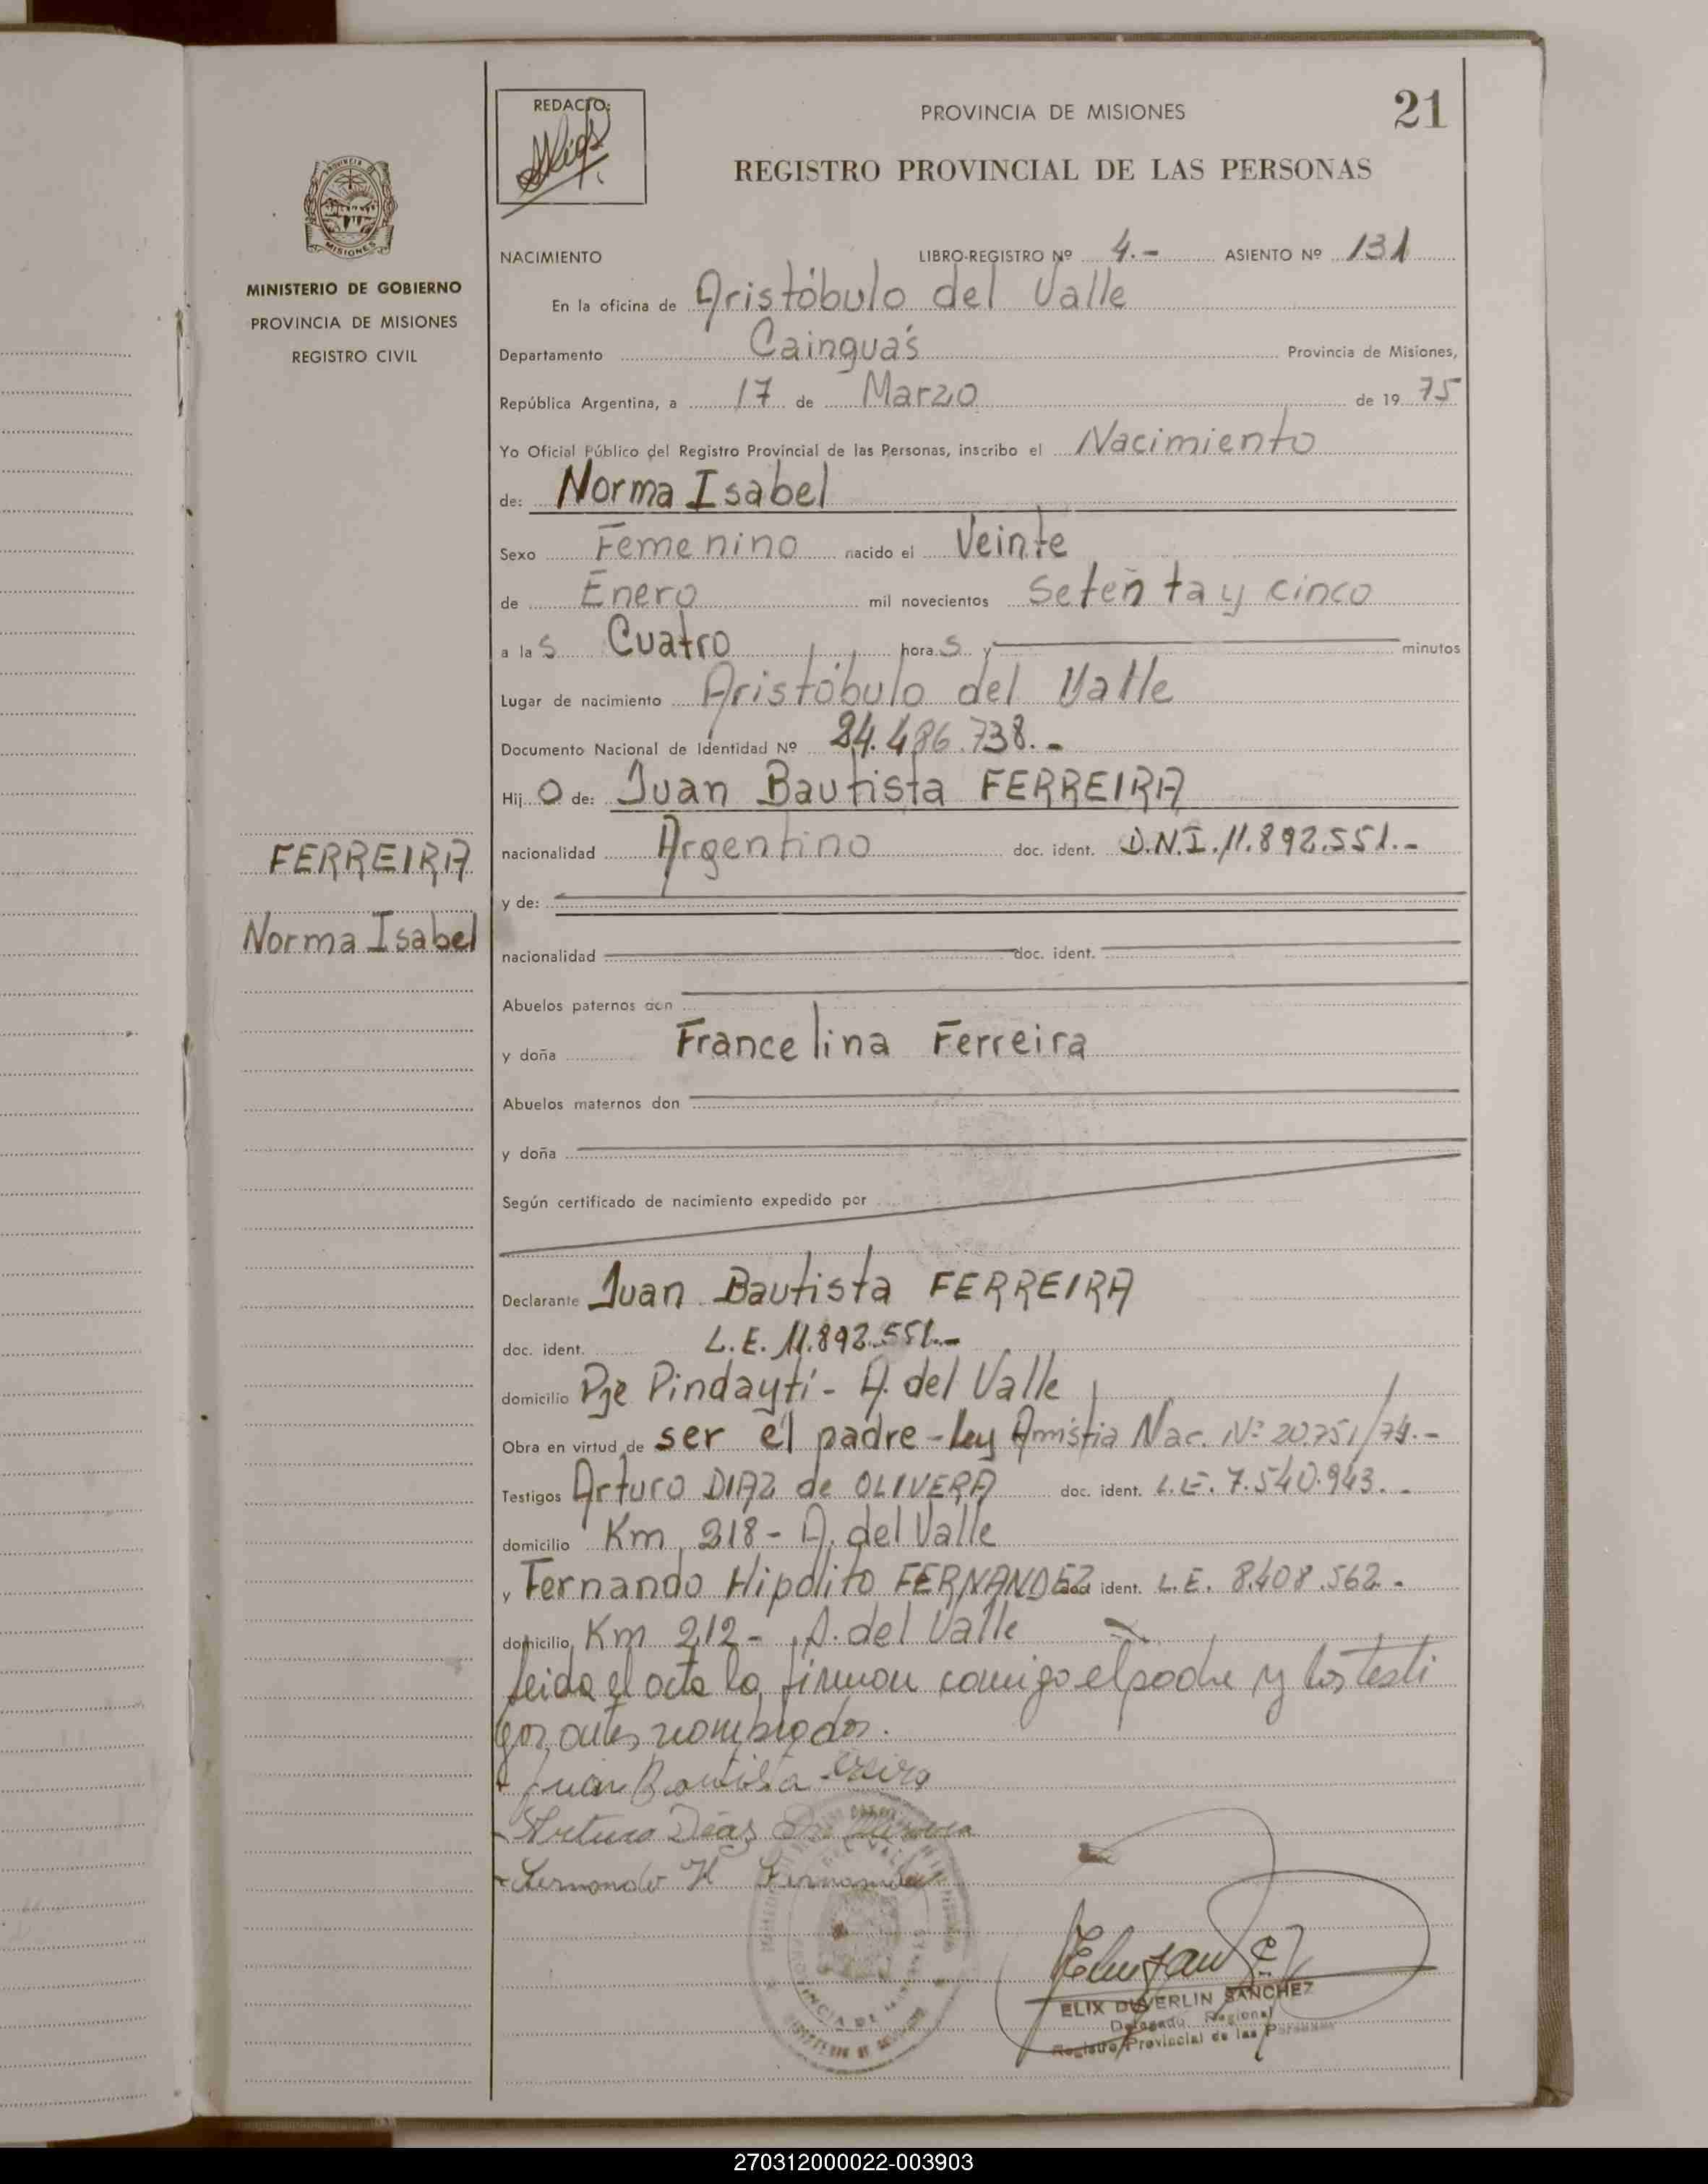 REDACTO:
PROVINCIA DE MISIONES
21
REGISTRO PROVINCIAL DE LAS PERSONAS
PROVINCIA
MISIONES
MINISTERIO DE GOBIERNO
PROVINCIA DE MISIONES
REGISTRO CIVIL
NACIMIENTO LIBRO-REGISTRO Nº 4.- ASIENTO Nº 131
En la oficina de Aristóbulo del Valle
Departamento Cainguás Provincia de Misiones,
República Argentina, a 17 de Marzo de 19 75
Yo Oficial Público del Registro Provincial de las Personas, inscribo el Nacimiento
de: Norma Isabel
Sexo Femenino nacido el Veinte
de Enero mil novecientos setenta y cinco
a las Cuatro horas y minutos
Lugar de nacimiento Aristóbulo del Valle
Documento Nacional de Identidad Nº 24.486.738.-
Hijo de: Juan Bautista FERREIRA
nacionalidad Argentino doc. ident. D.N.I. 11.892.551.-
FERREIRA
Norma Isabel
y de:
nacionalidad doc. ident.
Abuelos paternos don
y doña Francelina Ferreira
Abuelos maternos don
y doña
Según certificado de nacimiento expedido por
Declarante Juan Bautista FERREIRA
doc. ident. L.E. 11.892.551.-
domicilio Pje Pindaytí - A. del Valle
Obra en virtud de ser el padre - Ley Amistia Nac. Nº 20.751/74.-
Testigos Arturo DIAZ de OLIVERA doc. ident. L.E. 7.540.943.-
domicilio Km 218 - A. del Valle
y Fernando Hipólito FERNANDEZ doc. ident. L.E. 8.408.562.-
domicilio Km 212 - A. del Valle
leida el acta la firman comigo el padre y los testi
gos antes nombrados.
Juan Bautista
Arturo Dias
Fernando H Fernandez
ELIX DUVERLIN SANCHEZ
Delegado Regional
Registro Provincial de las Personas
270312000022-003903